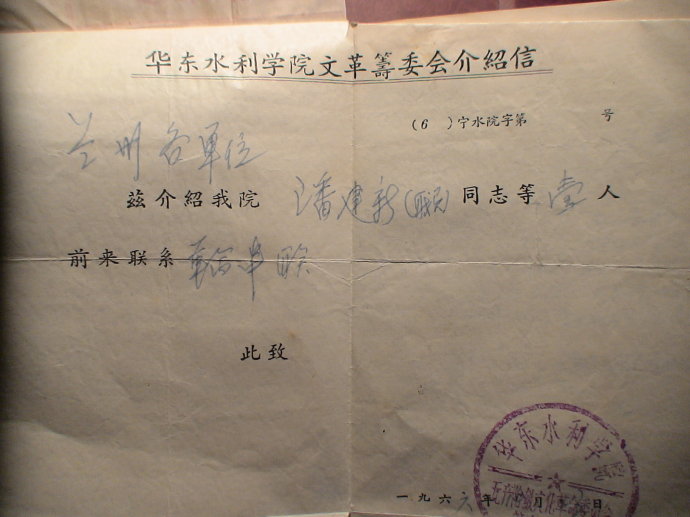 华东水利学院文革籌委会介紹信
(6 )宁水院字第 号
兰州各单位
茲介紹我院 潘建新 同志等 壹 人
前来联系
此致
华东水利学院
一九六六年 月 日